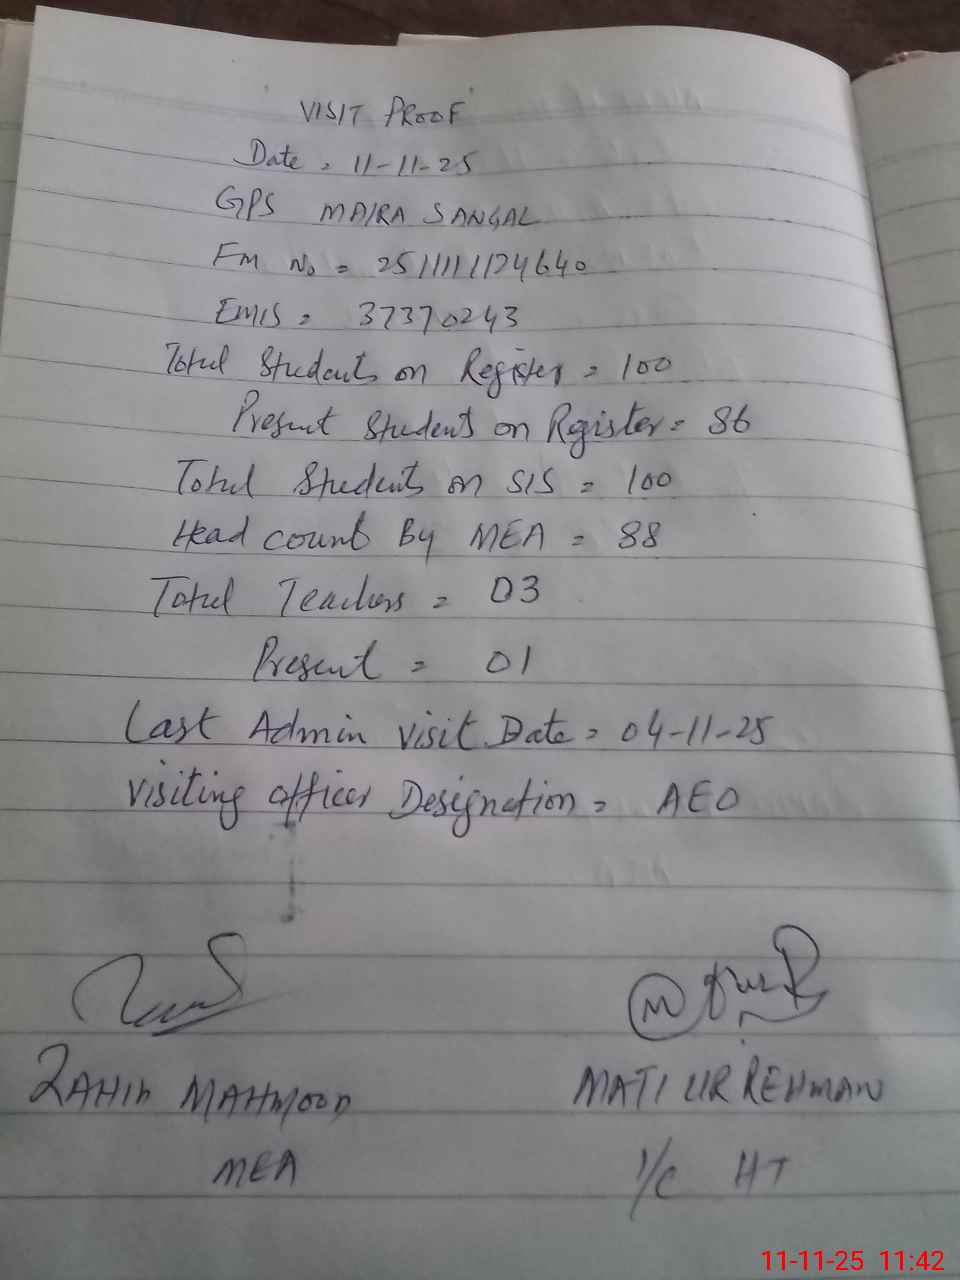 VISIT PROOF
Date = 11-11-25
GPS MAIRA SANGAL
Fm No = 251111124640
EMIS = 37370243
Total Students on Register = 100
Present Students on Register = 86
Total Students on SIS = 100
Head count By MEA = 88
Total Teachers = 03
Present = 01
Last Admin visit Date = 04-11-25
Visiting officer Designation = AEO
ZAHID MAHMOOD
MATI UR REHMAN
MEA
I/C HT
11-11-25 11:42